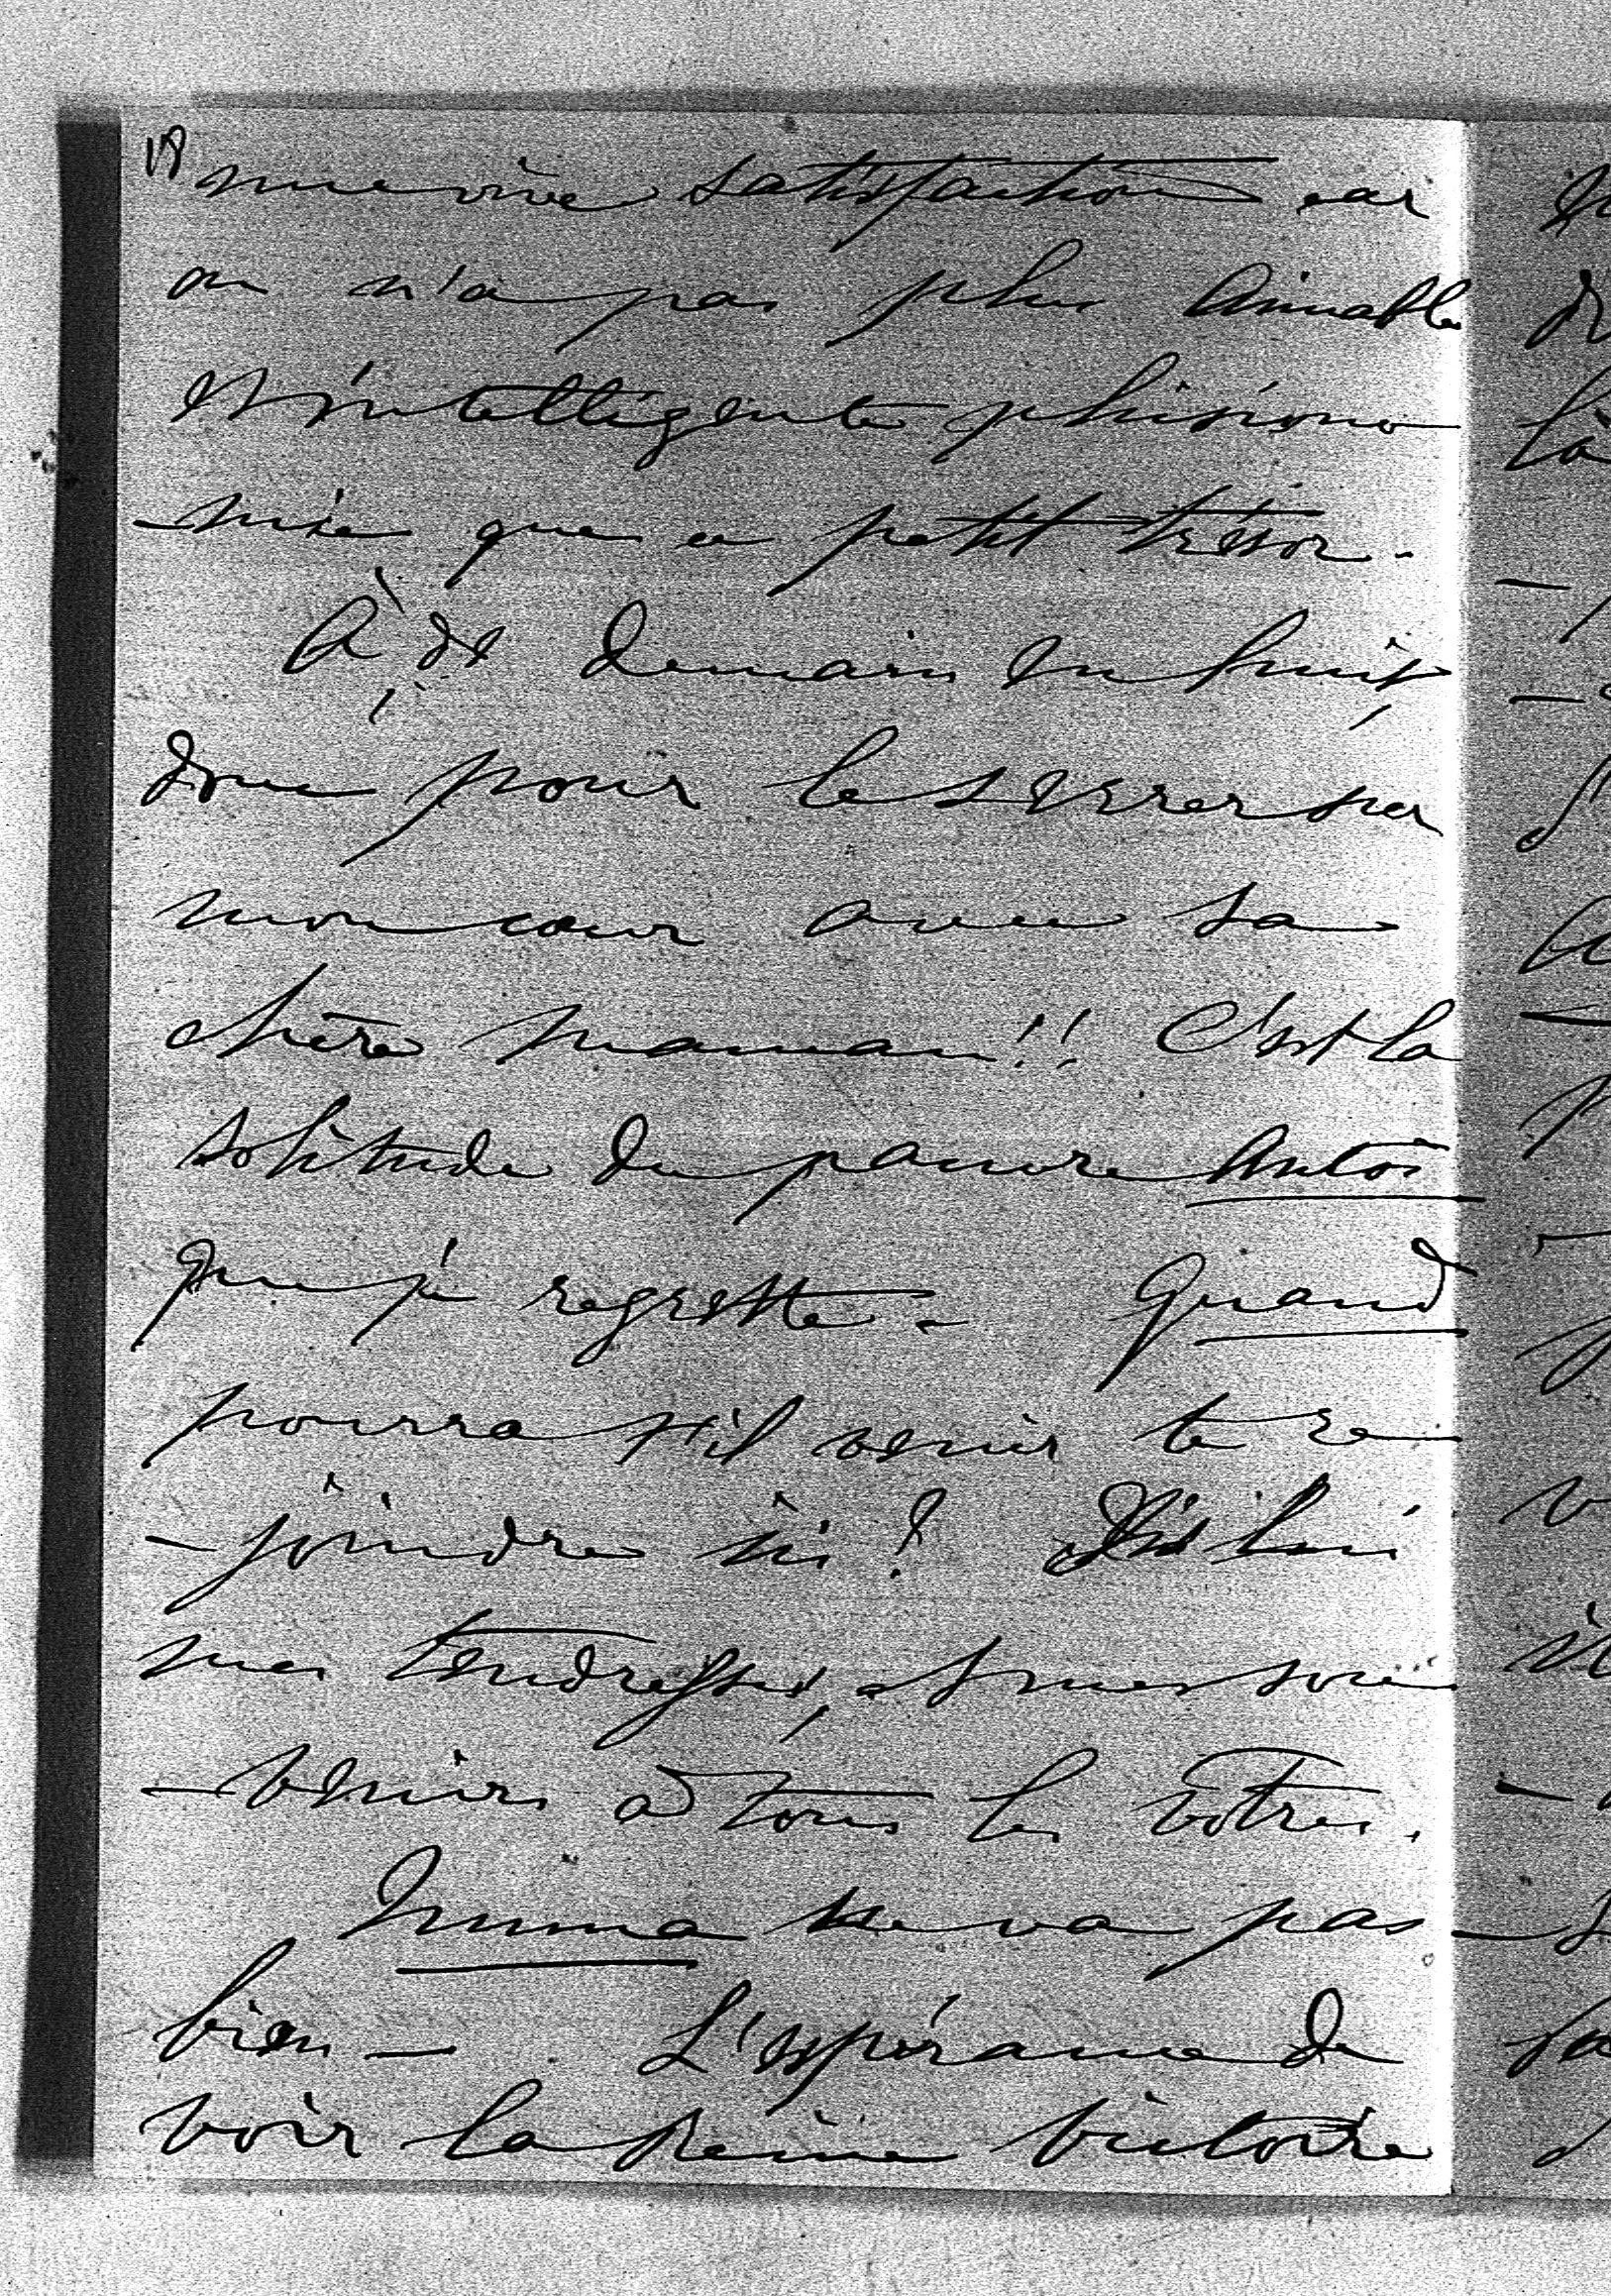 une vive satisfaction car
on n'a pas plus aimable
et intelligente phisiono
-mie que ce petit trésor.
À de demain en huit
donc pour le serrer sur
mon cœur avec sa
chère maman!! C'est la
solitude du pauvre Antoi
que je regrette - Quand
pourra t'il venir te re
-joindre ici? Dis lui
mes tendresses, et mes souve
-venirs à tous les vôtres.
Mumma ne va pas
bien - L'espérance de
voir la Reine Victoire